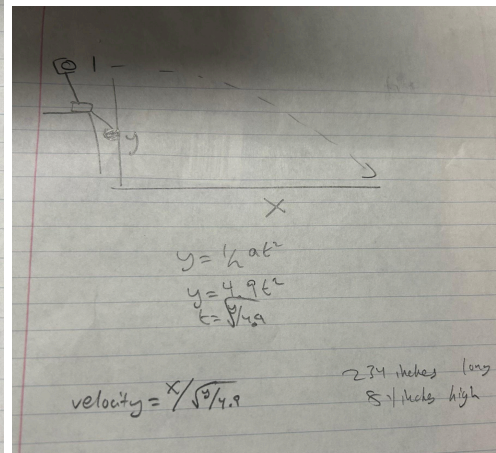 y
X
y = 1/2 at²
y = 4.9t²
t = √y/4.9
velocity = x/√y/4.9
234 inches long
inches high